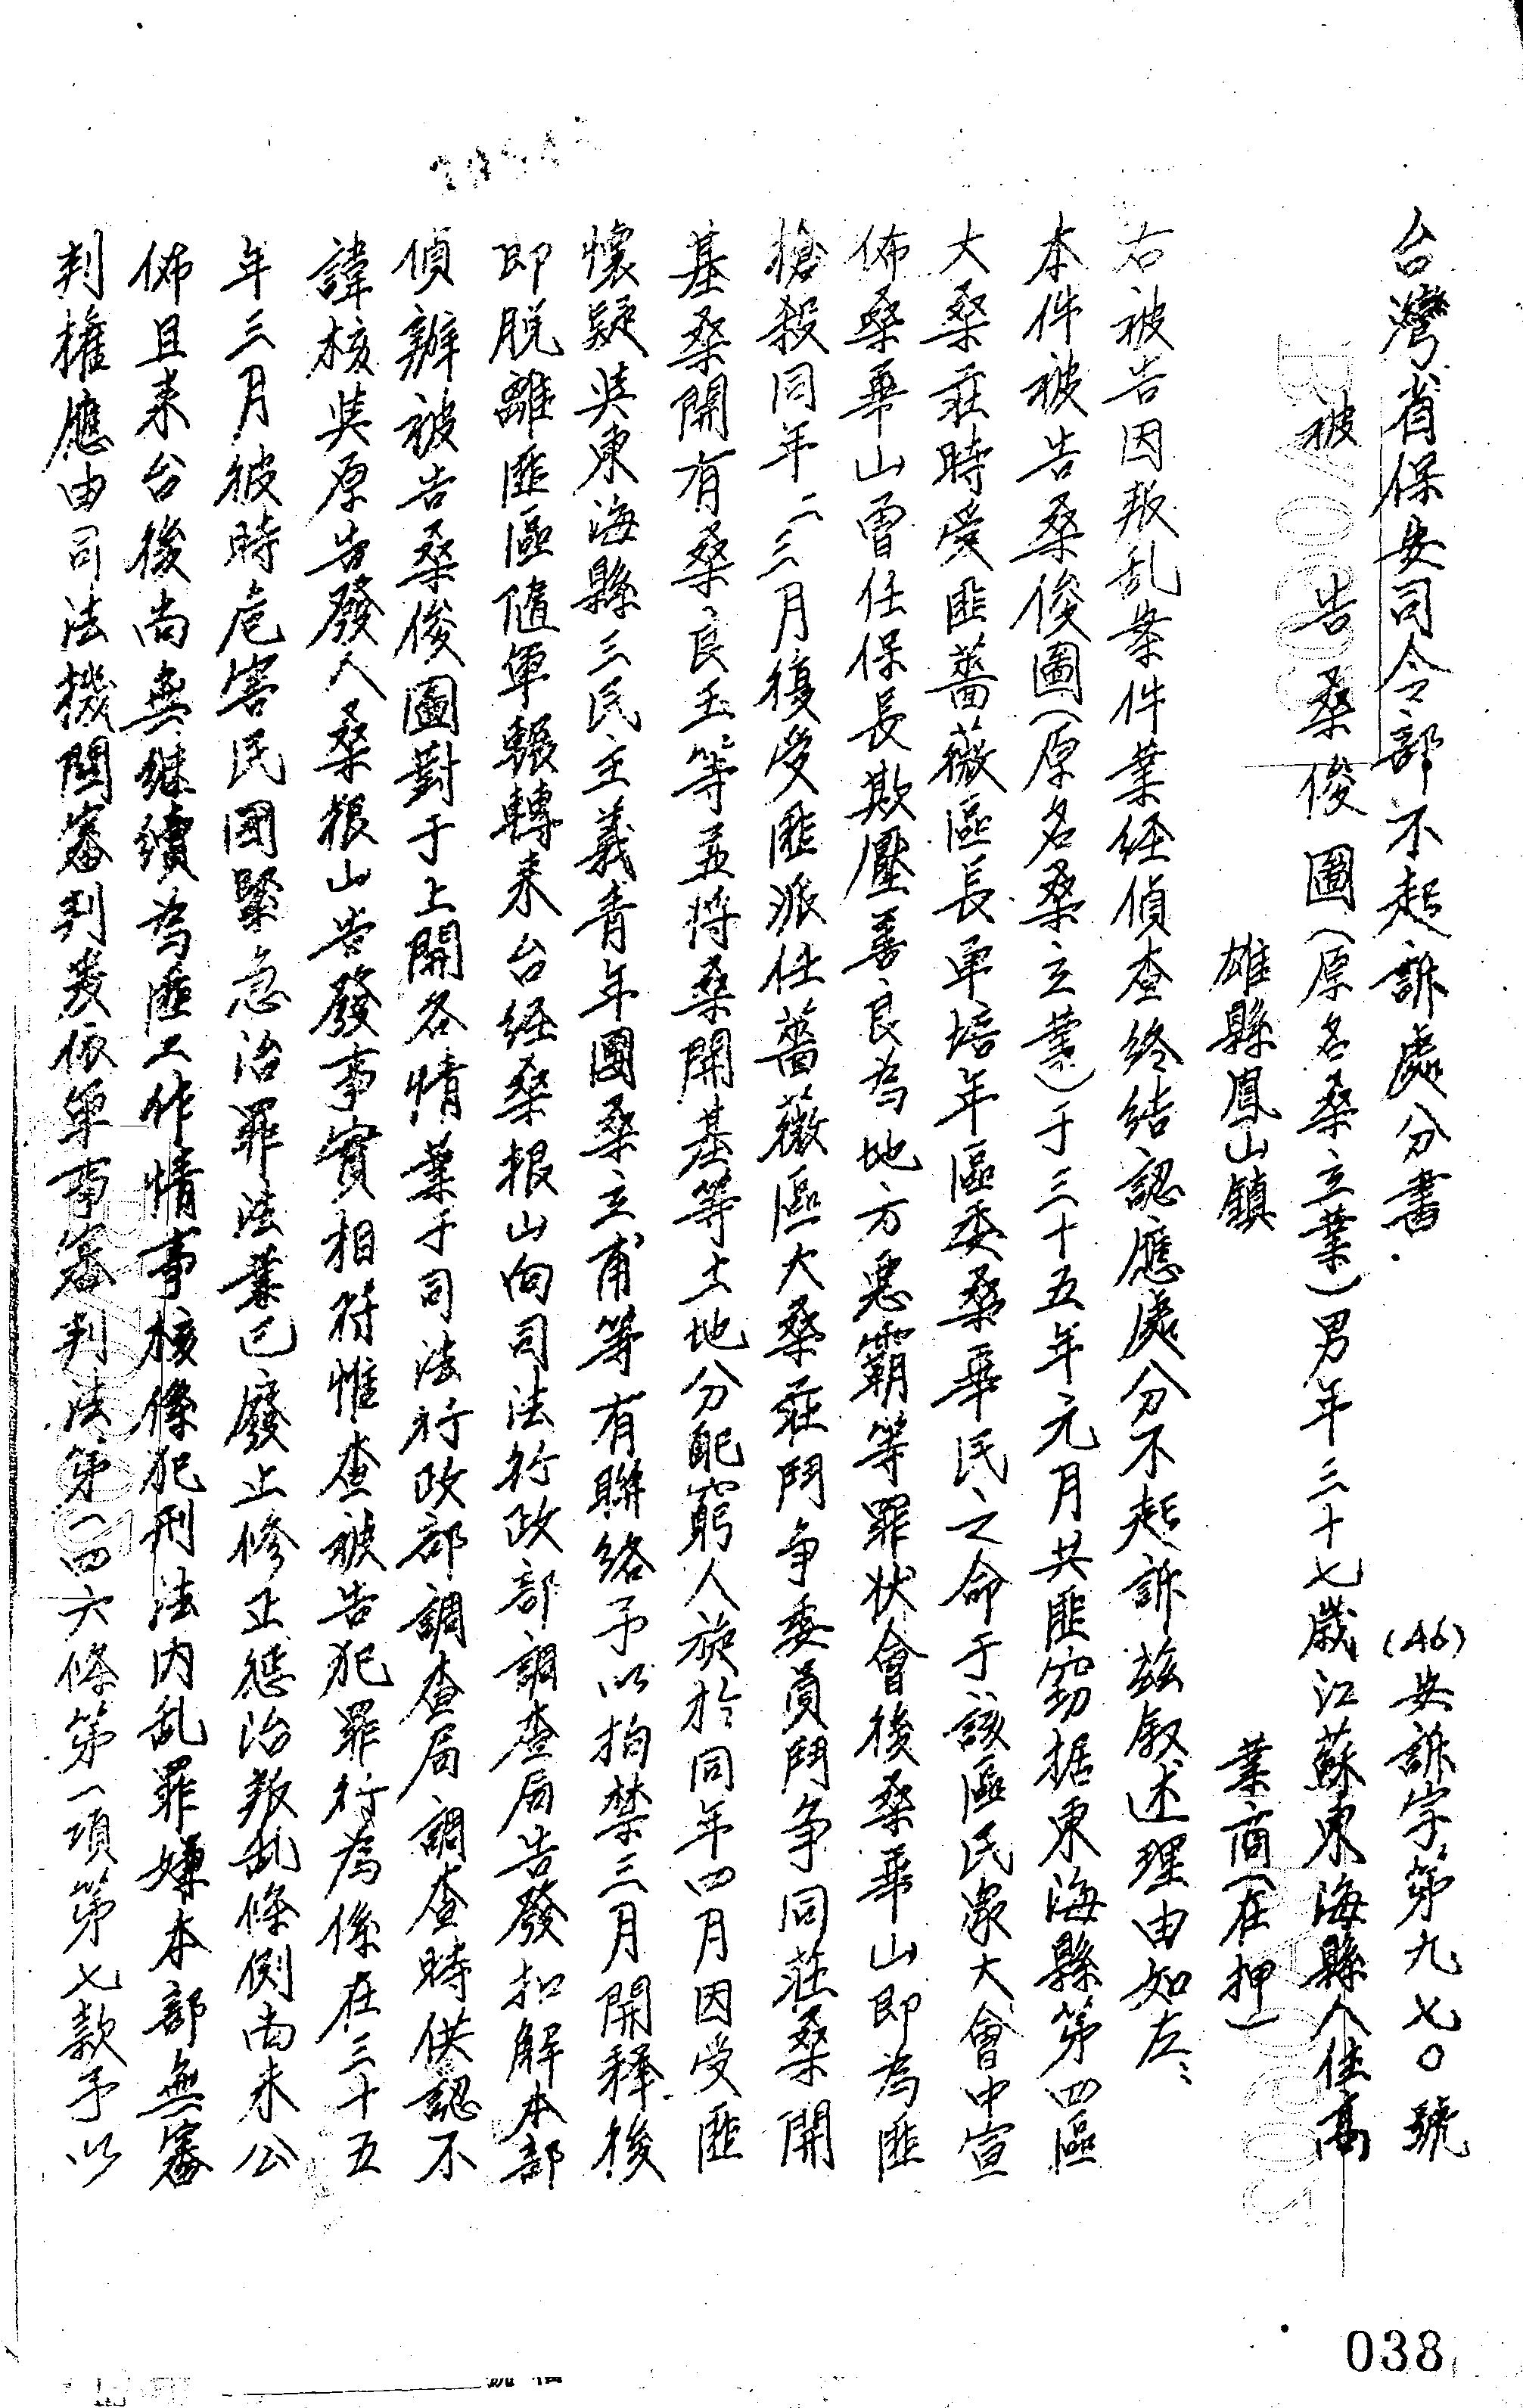 台灣省保安司令部不起訴處分書
(46)安訴字第九七〇號
被告桑俊圖(原名桑立業)男年三十七歲江蘇東海縣人住高
雄縣鳳山鎮
業商(在押)
右被告因叛乱案件業经偵查終結認應處分不起訴茲叙述理由如左:
本件被告桑俊圖(原名桑立業)于三十五年元月共匪窃据東海縣第四區
大桑莊時受匪薔薇區長單培年區委桑華民之命于該區民眾大會中宣
佈桑華山曾任保長欺壓善良為地方惡霸等罪状會後桑華山即為匪
搶殺同年二三月復受匪派任薔薇區大桑莊鬥争委員鬥争同莊桑開
基桑開有桑良玉等並將桑開基等土地分配窮人旋於同年四月因受匪
懷疑與東海縣三民主義青年團桑立甫等有聯络予以拘禁三月開释後
即脱離匪區隨軍輾轉来台经桑根山向司法行政部調查局告發扣解本部
偵辦被告桑俊圖對于上開各情業于司法行政部調查局調查時供認不
諱核與原告發人桑根山告發事實相符惟查被告犯罪行為係在三十五
年三月彼時危害民國緊急治罪法業已廢止修正懲治叛乱條例尚未公
佈且来台後尚無继續為匪工作情事核係犯刑法内乱罪嫌本部無審
判權應由司法機関審判爰依軍事審判法第一四六條第一項第七款予以
038